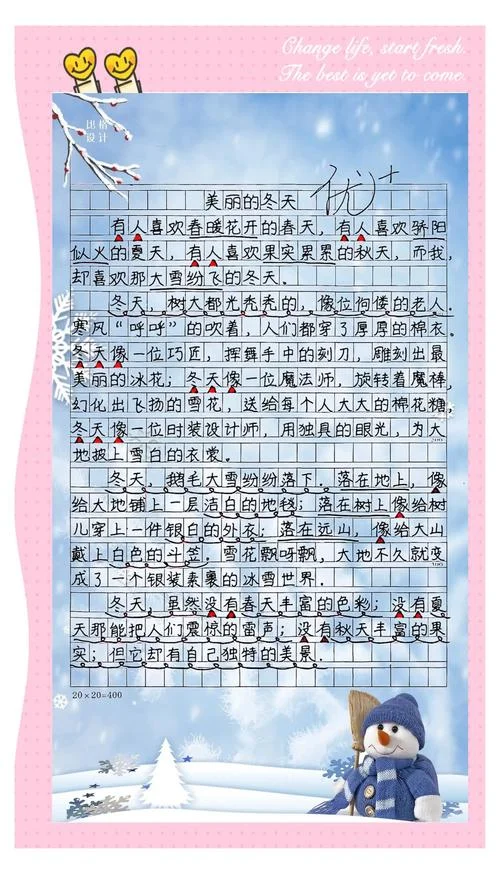 Change life, start fresh.
The best is yet to come.
比格
设计
优+
美丽的冬天
有人喜欢春暖花开的春天，有人喜欢骄阳
似火的夏天，有人喜欢果实累累的秋天，而我，
却喜欢那大雪纷飞的冬天．
冬天，树大都光秃秃的，像位佝偻的老人．
寒风“呼呼”的吹着，人们都穿了厚厚的棉衣．
冬天像一位巧匠，挥舞手中的刻刀，雕刻出最
美丽的冰花；冬天像一位魔法师，旋转着魔棒，
幻化出飞扬的雪花，送给每个人大大的棉花糖，
冬天像一位时装设计师，用独具的眼光，为大
地披上雪白的衣裳．
冬天，鹅毛大雪纷纷落下．落在地上，像
给大地铺上一层洁白的地毯；落在树上像给树
儿穿上一件银白的外衣；落在远山，像给大山
戴上白色的斗笠，雪花飘呀飘，大地不久就变
成了一个银装素裹的冰雪世界．
冬天，虽然没有春天丰富的色彩；没有夏
天那能把人们震惊的雷声；没有秋天丰富的果
实；但它却有自己独特的美景．
20×20=400